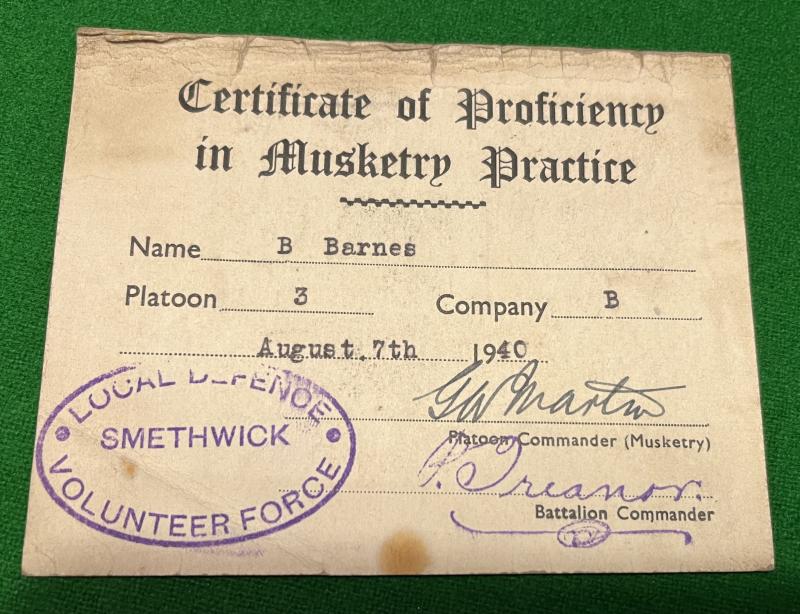 Certificate of Proficiency
in Musketry Practice
Name B Barnes
Platoon 3 Company B
August.7th 1940
G W Martin
Platoon Commander (Musketry)
P. Treanor.
Battalion Commander
LOCAL DEFENCE
SMETHWICK
VOLUNTEER FORCE